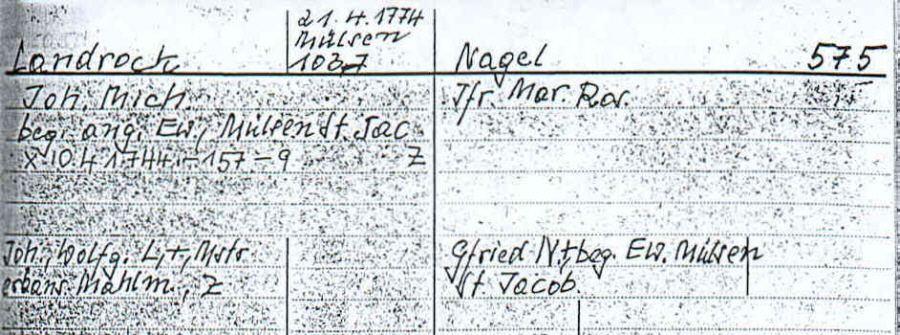 21.4.1774
Mülsen
Landrock 103,7 Nagel 575
Joh. Mich. Jfr. Mar. Ros.
beg. ang. Ew., Mülsen St. Jac.
x 10.4 1744 - 157 - 9 Z
Joh. Wolfg. L, +, Mstr.
Mahlm., Z
Gfried N, +, beg. Ew. Mülsen
St. Jacob.